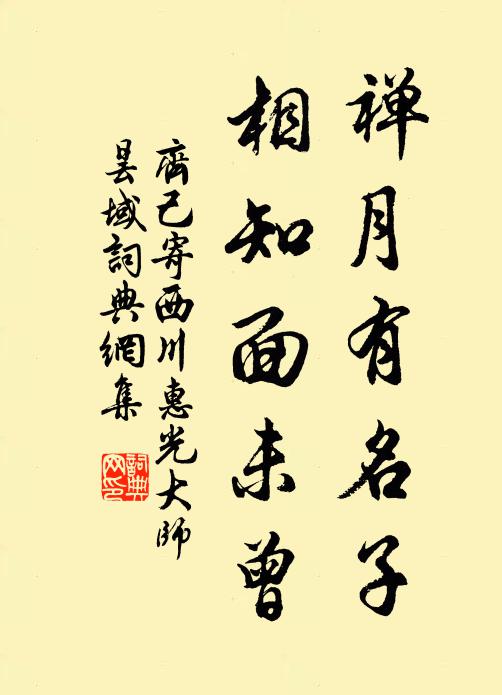 禅月有名子
相知面未曾
齊己寄西川惠光大師
曇域詞典網集
詞典
网印